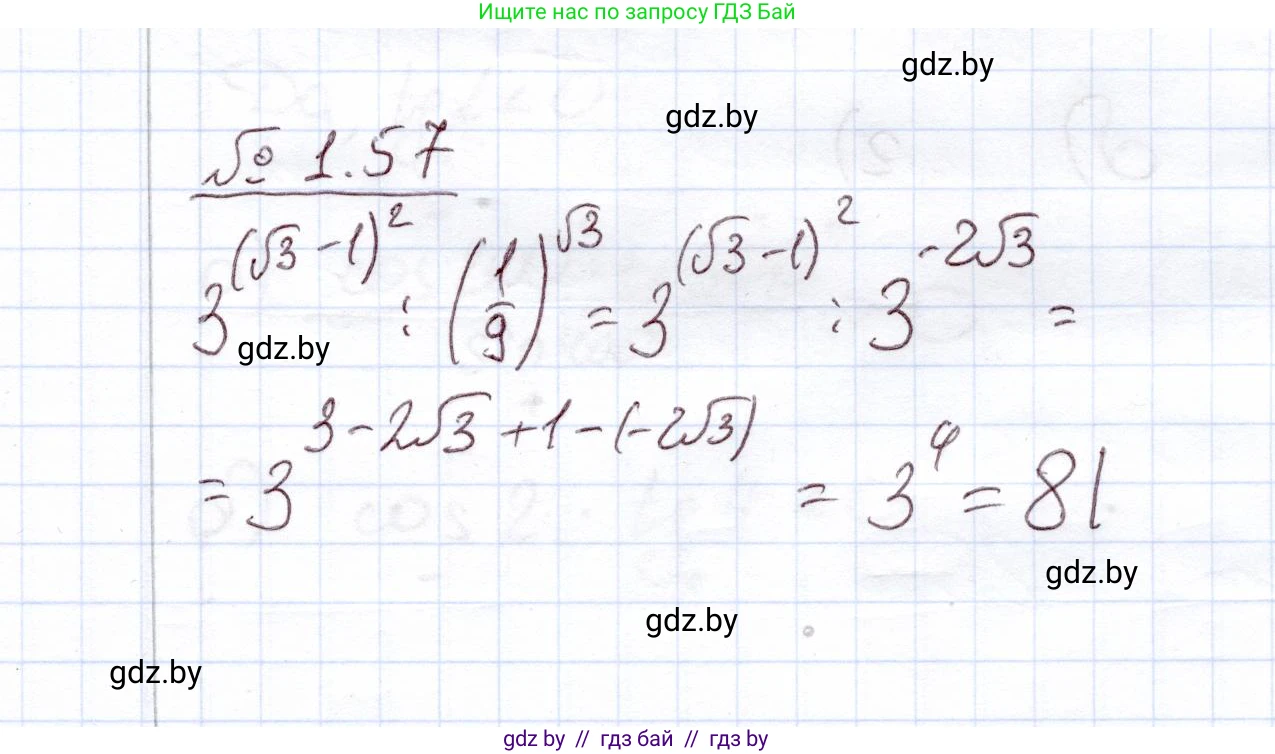 Ищите нас по запросу ГДЗ Бай
gdz.by
gdz.by
№ 1.57
3^(√3 - 1)^2 : (1/9)^√3 = 3^(√3 - 1)^2 : 3^-2√3 =
gdz.by
= 3^3 - 2√3 + 1 - (-2√3) = 3^4 = 81
gdz.by
gdz.by
gdz.by
gdz by // гдз бай // гдз by